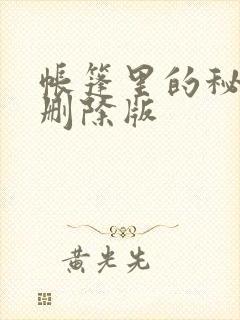 帐篷里的秘
删除版
黄光先